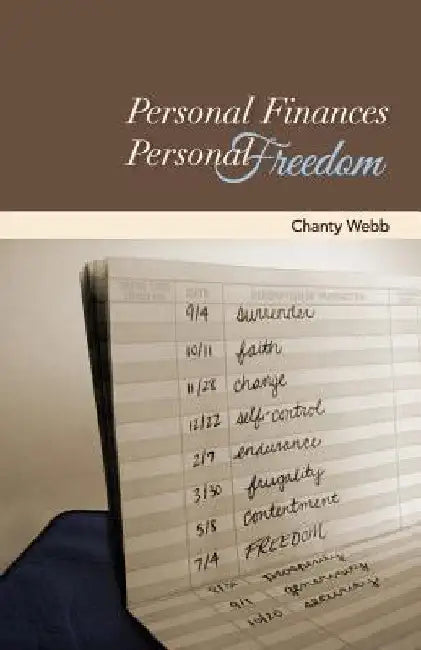 Personal Finances
Personal Freedom
Chanty Webb
DATE
9/4 surrender
10/11 faith
11/28 change
12/22 self-control
2/7 endurance
3/30 frugality
5/8 contentment
7/4 FREEDOM
prosperity
9/1 generosity
10/20 security